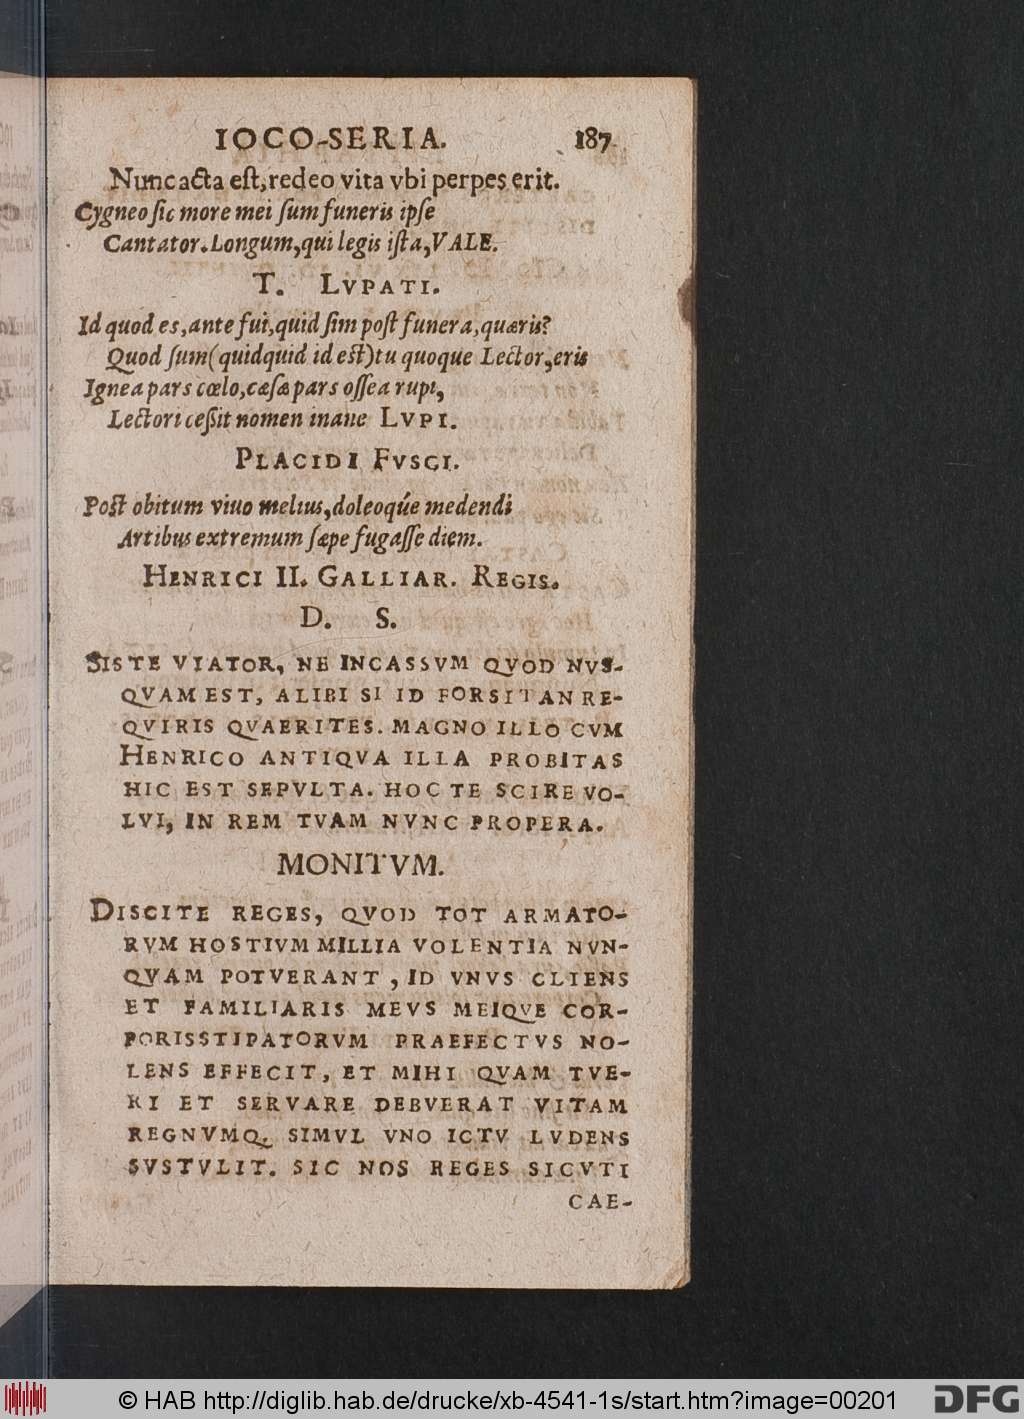 IOCO-SERIA. 187
Nunc acta est, redeo vita vbi perpes erit.
Cygneo sic more mei sum funeris ipse
Cantator. Longum, qui legis ista, VALE.
T. LVPATI.
Id quod es, ante fui, quid sim post funera, quæris?
Quod sum (quidquid id est) tu quoque Lector, eris
Ignea pars cœlo, cæsæ pars ossea rupi,
Lectori cessit nomen inane LVPI.
PLACIDI FVSCI.
Post obitum viuo melius, doleoqúe medendi
Artibus extremum sæpe fugasse diem.
HENRICI II. GALLIAR. REGIS.
D. S.
SISTE VIATOR, NE INCASSVM QVOD NVS-
QVAM EST, ALIBI SI ID FORSITAN RE-
QVIRIS QVAERITES. MAGNO ILLO CVM
HENRICO ANTIQVA ILLA PROBITAS
HIC EST SEPVLTA. HOC TE SCIRE VO-
LVI, IN REM TVAM NVNC PROPERA.
MONITVM.
DISCITE REGES, QVOD TOT ARMATO-
RVM HOSTIVM MILLIA VOLENTIA NVN-
QVAM POTVERANT, ID VNVS CLIENS
ET FAMILIARIS MEVS MEIQVE COR-
PORIS STIPATORVM PRAEFECTVS NO-
LENS EFFECIT, ET MIHI QVAM TVE-
RI ET SERVARE DEBVERAT VITAM
REGNVMQ. SIMVL VNO ICTV LVDENS
SVSTVLIT. SIC NOS REGES SICVTI
CAE-
© HAB http://diglib.hab.de/drucke/xb-4541-1s/start.htm?image=00201
DFG